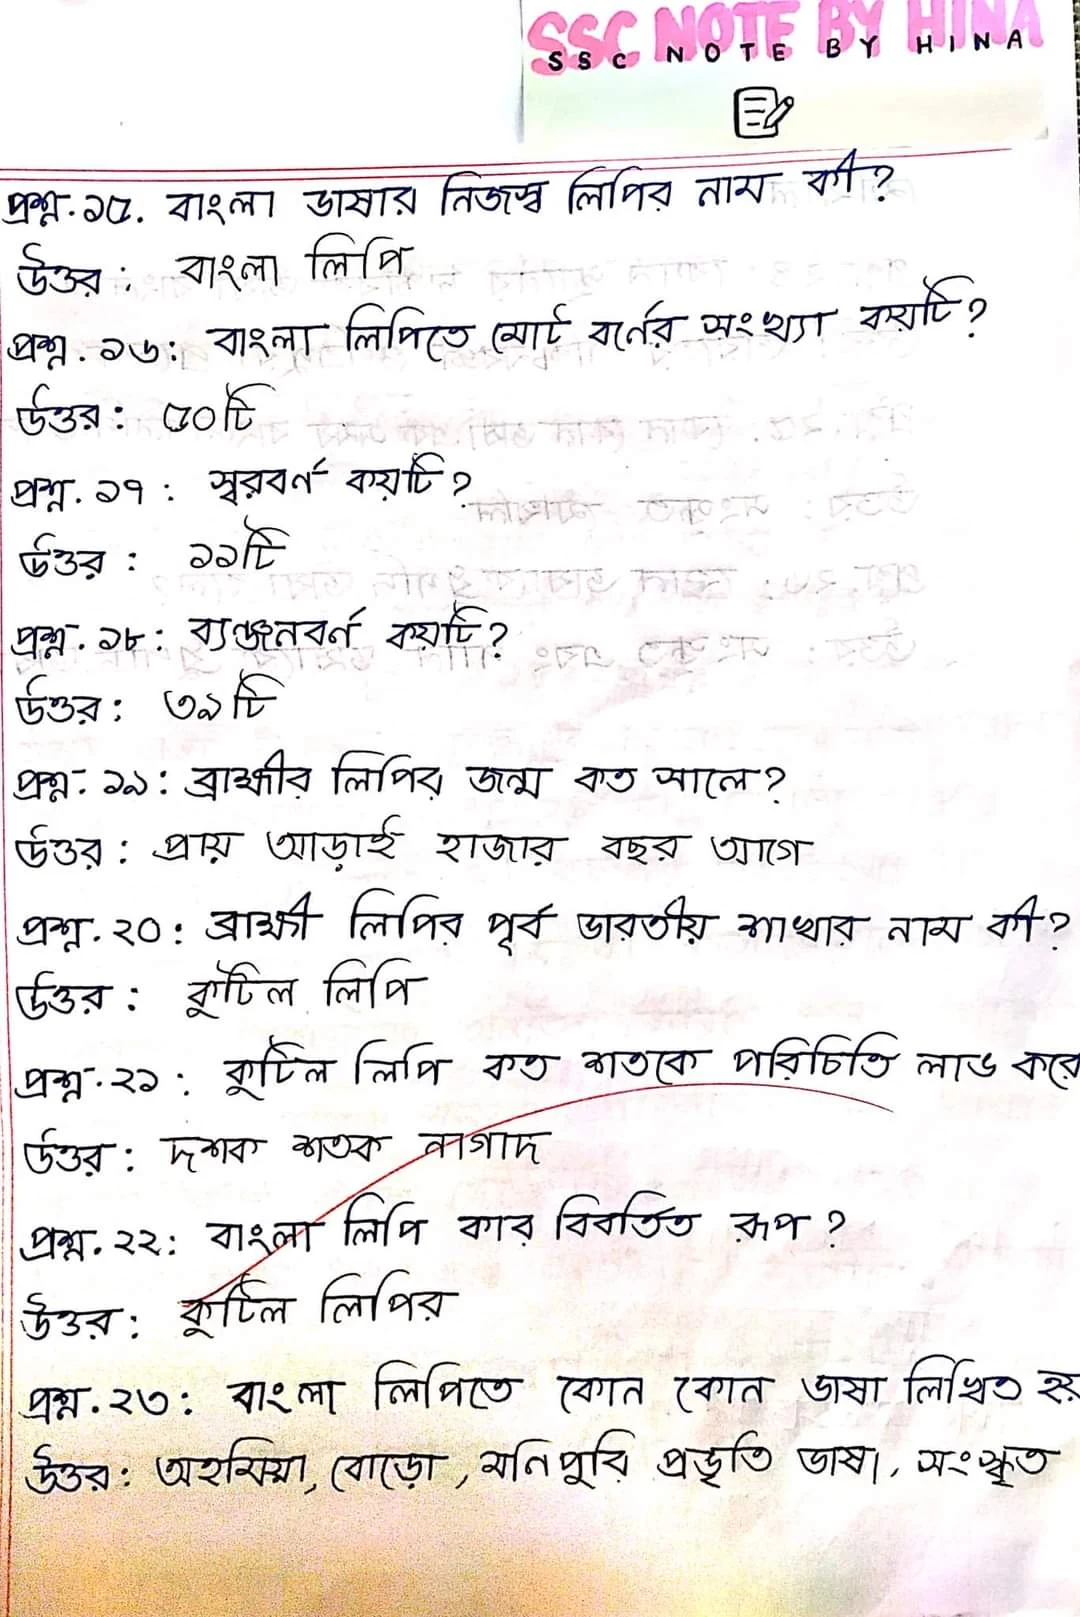 SSC NOTE BY HINA
SSC NOTE BY HINA
প্রশ্ন.১৫. বাংলা ভাষার নিজস্ব লিপির নাম কী?
উত্তর: বাংলা লিপি
প্রশ্ন.১৬: বাংলা লিপিতে মোট বর্ণের সংখ্যা কয়টি?
উত্তর: ৫০টি
প্রশ্ন.১৭: স্বরবর্ণ কয়টি?
উত্তর: ১১টি
প্রশ্ন.১৮: ব্যঞ্জনবর্ণ কয়টি?
উত্তর: ৩৯টি
প্রশ্ন.১৯: ব্রাহ্মীর লিপির জন্ম কত সালে?
উত্তর: প্রায় আড়াই হাজার বছর আগে
প্রশ্ন.২০: ব্রাহ্মী লিপির পূর্ব ভারতীয় শাখার নাম কী?
উত্তর: কুটিল লিপি
প্রশ্ন.২১: কুটিল লিপি কত শতকে পরিচিতি লাভ করে
উত্তর: দশক শতক নাগাদ
প্রশ্ন.২২: বাংলা লিপি কার বিবর্তিত রূপ?
উত্তর: কুটিল লিপির
প্রশ্ন.২৩: বাংলা লিপিতে কোন কোন ভাষা লিখিত হয়
উত্তর: অহমিয়া, বোড়ো, মনিপুরি প্রভৃতি ভাষা, সংস্কৃত